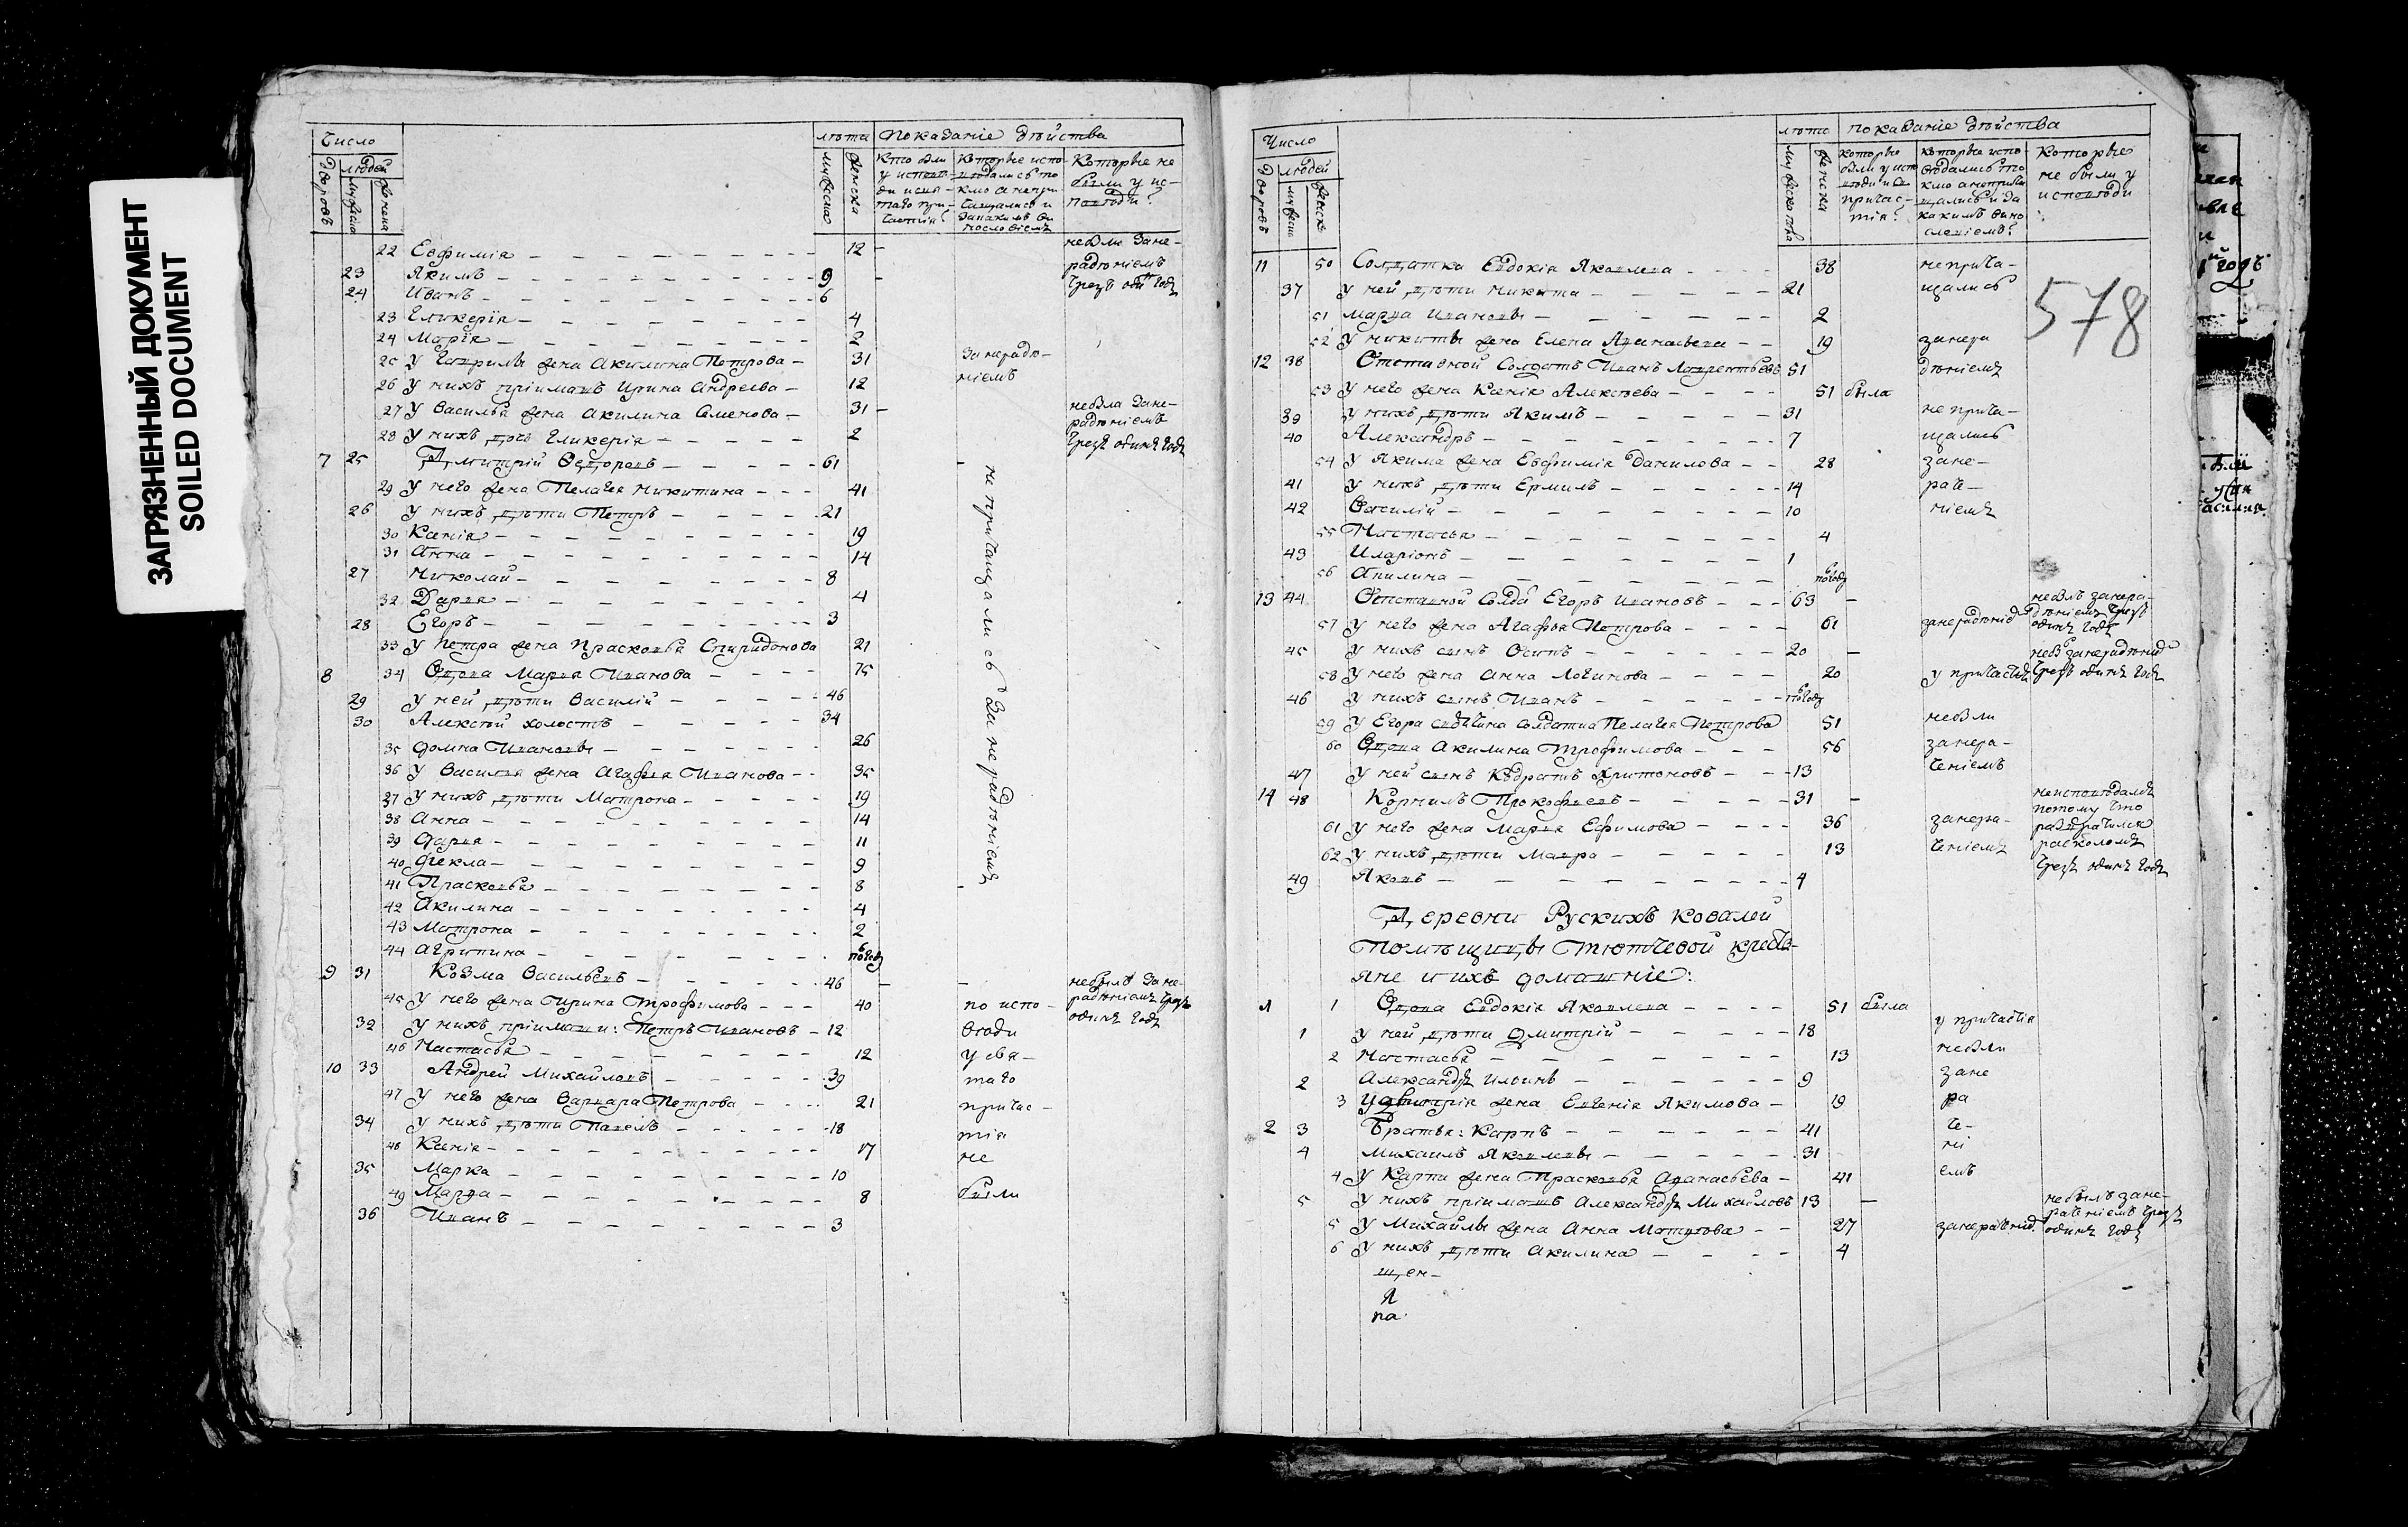 ЗАГРЯЗНЕННЫЙ ДОКУМЕНТ
SOILED DOCUMENT
Число
лѣта Показаніе дѣйства
Дворовъ людей мужеска женска
мужеска женска
Кто были у исповѣди и святаго причастія?
Которые исповѣдались токмо а не причащались и за какимъ винословіемъ
Которые не были у исповѣди?
22 Евфимія 12 не были за не-
23 Якимъ 9 радѣніемъ
24 Иванъ 6 чрезъ одинъ годъ
23 Гликерія 4
24 Марія 2
25 У Гаврилы жена Акилина Петрова 31 за нерадѣ-
26 У нихъ пріимашъ Ирина Андреева 12 ніемъ
27 У Василья жена Акилина Семенова 31 не была за не-
радѣніемъ
28 У нихъ дочь Гликерія 2 чрезъ одинъ годъ
7 25 Дмитрій Ѳедоровъ 61
29 У него жена Пелагея Никитина 41
26 У нихъ дѣти Петръ 21
30 Ксенія 19
31 Анна 14
27 Николай 8
32 Дарья 4
28 Егоръ 3
33 У Петра жена Прасковья Спиридонова 21
8 34 Вдова Марья Иванова 75
29 У ней дѣти Василій 46
30 Алексѣй холостъ 34
35 Домна Ивановы 26
36 У Василья жена Агафья Иванова 35
37 У нихъ дѣти Матрона 19
38 Анна 14
39 Дарья 11
40 Фекла 9
41 Прасковья 8
42 Акилина 4
43 Матрона 2
44 Агрипина полгод
не причащались за нерадѣніемъ
9 31 Козма Васильевъ 46 не былъ за не-
45 У него жена Ирина Трофимова 40 по испо- радѣніемъ чрезъ
32 У нихъ пріимаши: Петръ Ивановъ 12 вѣди одинъ годъ
46 Настасья 12 у свя-
10 33 Андрей Михайловъ 39 таго
47 У него жена Варвара Петрова 21 причас-
34 У нихъ дѣти Павелъ 18 тія
48 Ксенія 17 не
35 Марка 10
49 Марѳа 8 были
36 Иванъ 3
Число
лѣта показаніе дѣйства
Дворовъ людей мужеск женск
женска
которые были у исповѣди и св причастія?
которые исповѣдались токмо а не причащались и за какимъ винословіемъ?
Которые не были у исповѣди
578
11 50 Солдатка Евдокія Яковлева 38 не прича-
37 У ней дѣти Никита 21 щались
51 Марѳа Ивановы 2
52 У Никиты жена Елена Аѳанасьева 19 за нера
12 38 Отставной Солдатъ Иванъ Лаврентьевъ 51 дѣніемъ
53 У него жена Ксенія Алексѣева 51 была
39 У нихъ дѣти Якимъ 31 не прича-
40 Александръ 7 щались
54 У Якима жена Евфимія Данилова 28 за не-
41 У нихъ дѣти Ермилъ 14 раче-
42 Василій 10 ніемъ
55 Настасья 4
43 Иларіонъ 1
56 Акилина полгод
13 44 Отставной Солда Егоръ Ивановъ 63 не былъ за нера-
дѣніемъ чрезъ
57 У него жена Агафья Петрова 61 за нерадѣніе одинъ годъ
45 У нихъ сынъ Осипъ 20 не б за нерадѣніе
58 У него жена Анна Логинова 20 у причастія чрезъ одинъ годъ
46 У нихъ сынъ Иванъ полгод
59 У Егора солдатка Пелагея Петрова 51 не были
60 Вдова Акилина Трофимова 56 за нера-
47 У ней сынъ Кодратъ Харитоновъ 13 ченіемъ
14 48 Корнилъ Прокофьевъ 31 не исповѣдался
потому что
61 У него жена Марья Ефимова 36 за нера- развратился
62 У нихъ дѣти Мавра 13 ченіемъ расколомъ
49 Яковъ 4 чрезъ одинъ годъ
Деревни Рускихъ Ковалей
Помѣщицы Тютчевой кресть-
яне и ихъ домашніе:
1 1 Вдова Евдокія Яковлева 51 была
1 У ней дѣти Дмитрій 18 у причастія
2 Настасья 13 не были
2 Александръ Ильины 9 за не
3 У Дмитрія жена Евгенія Якимова 19 ра
2 3 Братья: Карпъ 41 че-
4 Михаилъ Яковлевы 31 ні
4 У Карпа жена Прасковья Аѳанасьева 41 емъ
5 У нихъ пріимашъ Александръ Михайловъ 13 не былъ за не-
раченіемъ чрезъ
5 У Михайлы жена Анна Матвѣева 27 за нераченіе одинъ годъ
6 У нихъ дѣти Акилина 4
щен-
Я
па